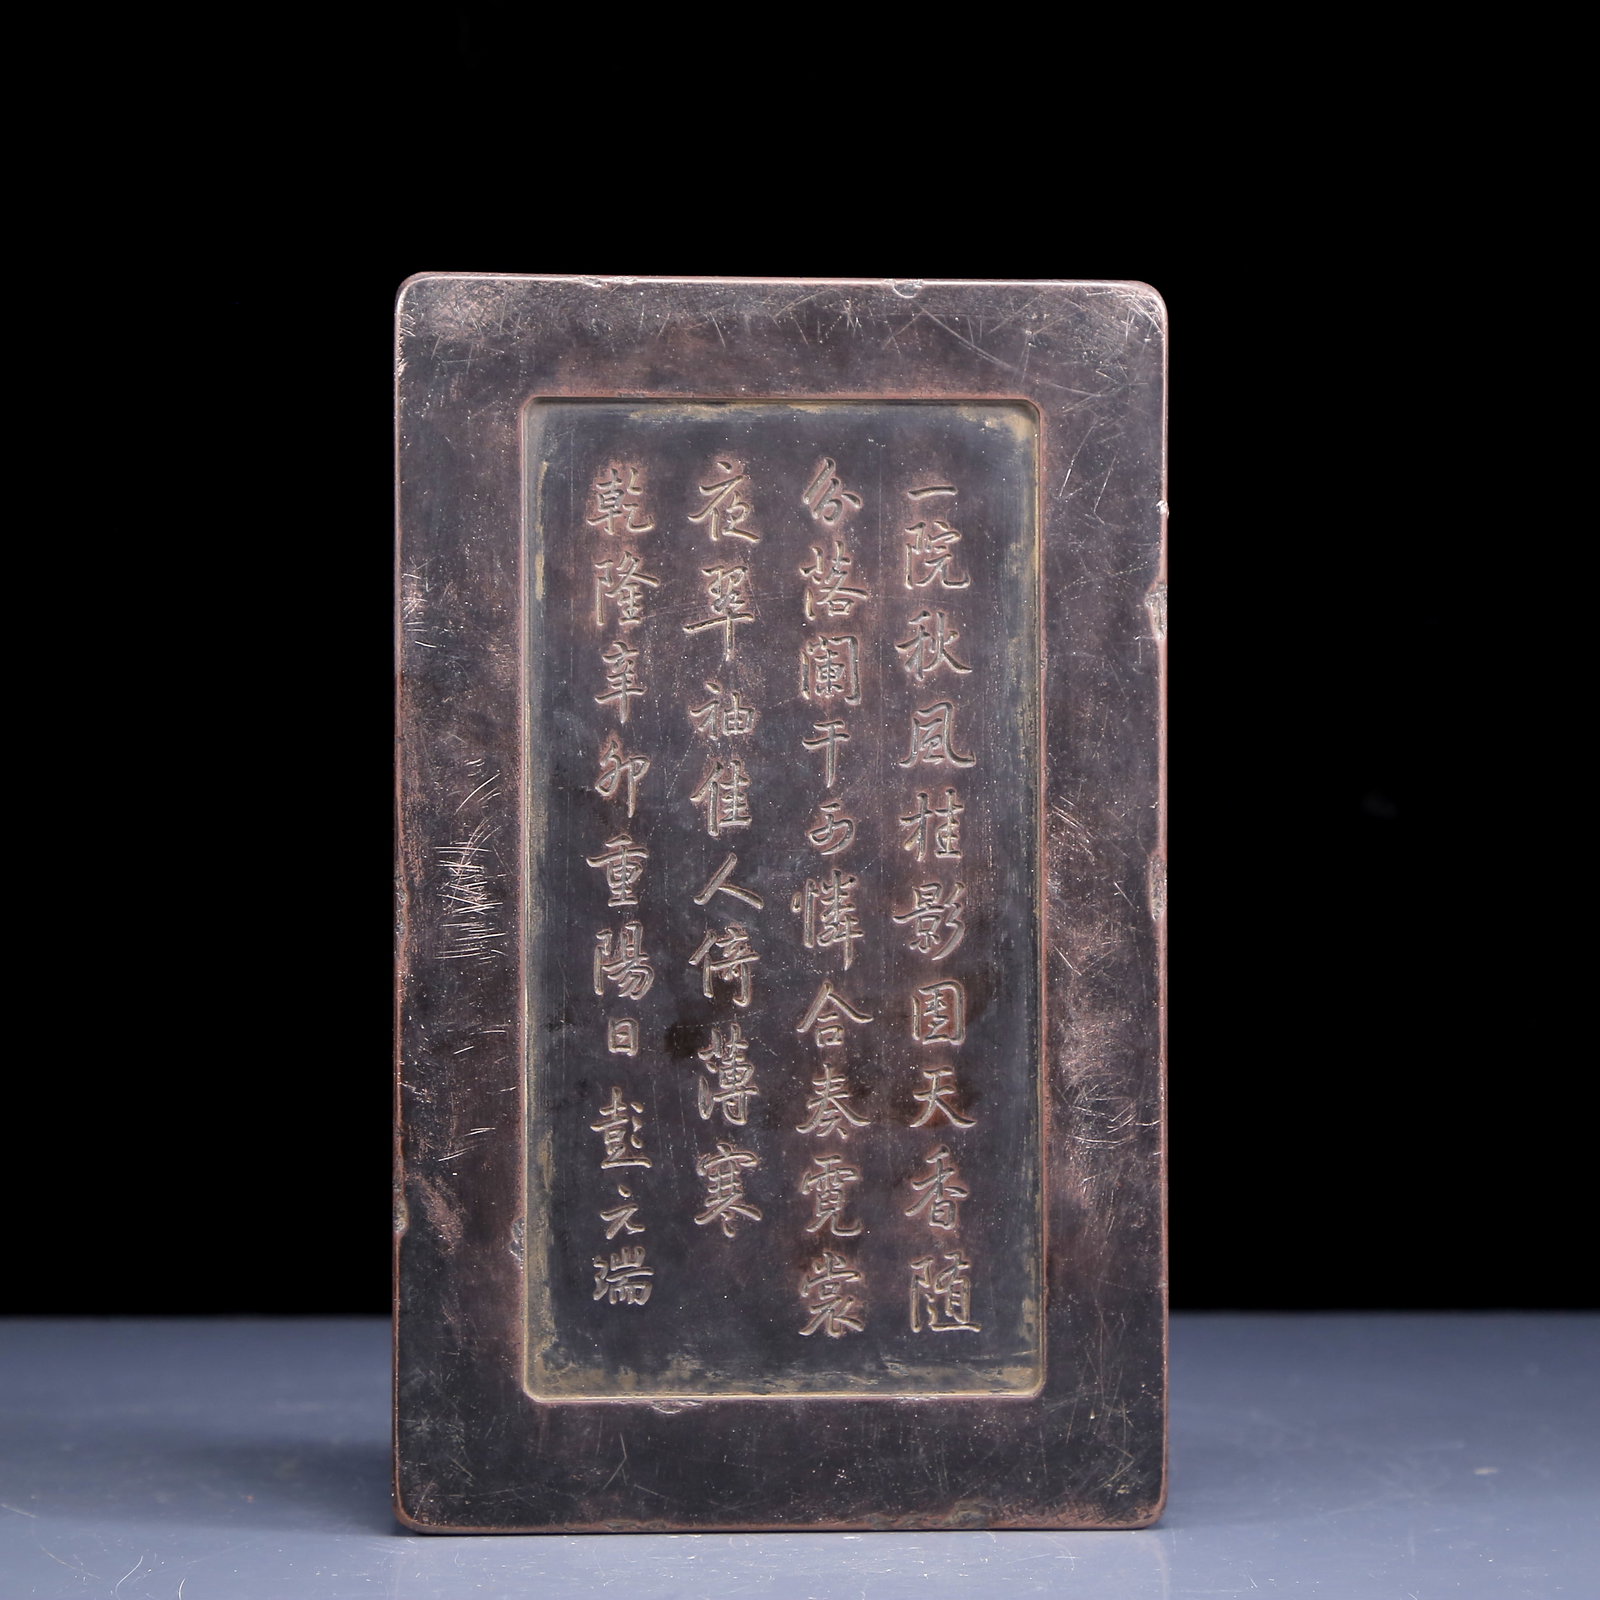 一院秋風桂影團天香随
分落闌干可憐合奏霓裳
夜翠袖佳人倚薄寒
乾隆辛卯重陽日 彭元瑞